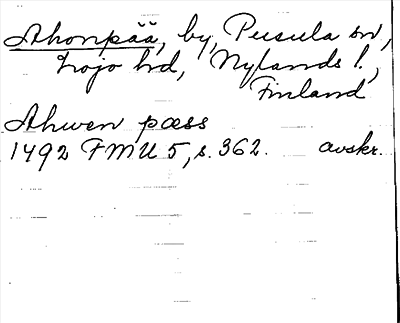 Ahonpää, by, Pusula sn,
Lojo hd, Nylands l.,
Finland
Ahwen pæss
1492 FMU 5, s. 362. avskr.